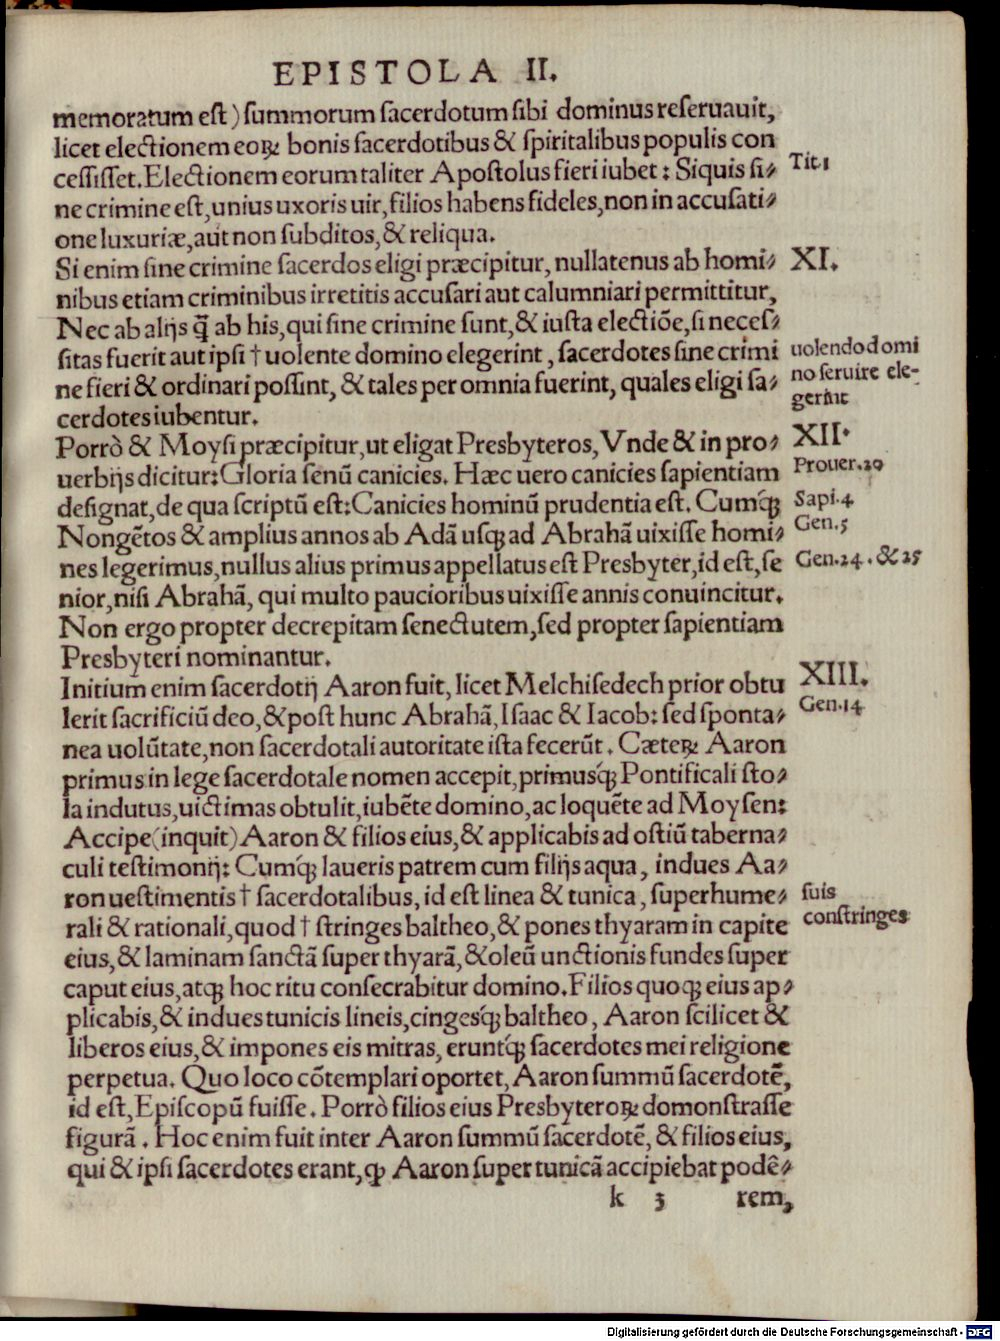 EPISTOLA II.
memoratum est) ſummorum ſacerdotum ſibi dominus reſeruauit,
licet electionem eoꝝ bonis ſacerdotibus & ſpiritalibus populis con
ceſſiſſet. Electionem eorum taliter Apoſtolus fieri iubet: Siquis ſi⸗
Tit.1
ne crimine eſt, unius uxoris uir, filios habens fideles, non in accuſati⸗
one luxuriæ, aut non ſubditos, & reliqua.
Si enim ſine crimine ſacerdos eligi præcipitur, nullatenus ab homi⸗
XI.
nibus etiam criminibus irretitis accuſari aut calumniari permittitur,
Nec ab alijs q̄ ab his, qui ſine crimine ſunt, & iuſta electiõe, ſi neceſ⸗
ſitas fuerit aut ipſi † uolente domino elegerint, ſacerdotes ſine crimi
uolendo domi
ne fieri & ordinari poſſint, & tales per omnia fuerint, quales eligi ſa⸗
no ſeruire ele-
cerdotes iubentur.
gerint
Porrò & Moyſi præcipitur, ut eligat Presbyteros, Vnde & in pro⸗
XII.
uerbijs dicitur: Gloria ſenũ canicies. Hæc uero canicies ſapientiam
Prouer.20
deſignat, de qua ſcriptũ eſt: Canicies hominũ prudentia eſt. Cumq́ꝫ
Sapi.4
Nongẽtos & amplius annos ab Adã uſqꝫ ad Abrahã uixiſſe homi⸗
Gen.5
nes legerimus, nullus alius primus appellatus eſt Presbyter, id eſt, ſe
Gen.24. & 25
nior, niſi Abrahã, qui multo paucioribus uixiſſe annis conuincitur.
Non ergo propter decrepitam ſenectutem, ſed propter ſapientiam
Presbyteri nominantur.
Initium enim ſacerdotij Aaron fuit, licet Melchiſedech prior obtu
XIII.
lerit ſacrificiũ deo, & poſt hunc Abrahã, Iſaac & Iacob: ſed ſponta⸗
Gen.14
nea uolũtate, non ſacerdotali autoritate iſta fecerũt. Cæteꝝ Aaron
primus in lege ſacerdotale nomen accepit, primusq́ꝫ Pontificali ſto⸗
la indutus, uictimas obtulit, iubẽte domino, ac loquẽte ad Moyſen:
Accipe (inquit) Aaron & filios eius, & applicabis ad oſtiũ taberna⸗
culi teſtimonij: Cumq́ꝫ laueris patrem cum filijs aqua, indues Aa⸗
ron ueſtimentis † ſacerdotalibus, id eſt linea & tunica, ſuperhume⸗
ſuis
rali & rationali, quod † ſtringes baltheo, & pones thyaram in capite
conſtringes
eius, & laminam ſanctã ſuper thyarã, & oleũ unctionis fundes ſuper
caput eius, atqꝫ hoc ritu conſecrabitur domino. Filios quoqꝫ eius ap⸗
plicabis, & indues tunicis lineis, cingesq́ꝫ baltheo, Aaron ſcilicet &
liberos eius, & impones eis mitras, eruntq́ꝫ ſacerdotes mei religione
perpetua. Quo loco cõtemplari oportet, Aaron ſummũ ſacerdotẽ,
id eſt, Epiſcopũ fuiſſe. Porrò filios eius Presbyteroꝝ domonſtraſſe
figurã. Hoc enim fuit inter Aaron ſummũ ſacerdotẽ, & filios eius,
qui & ipſi ſacerdotes erant, ꝙ Aaron ſuper tunicã accipiebat podẽ⸗
k 3 rem,
Digitalisierung gefördert durch die Deutsche Forschungsgemeinschaft - DFG